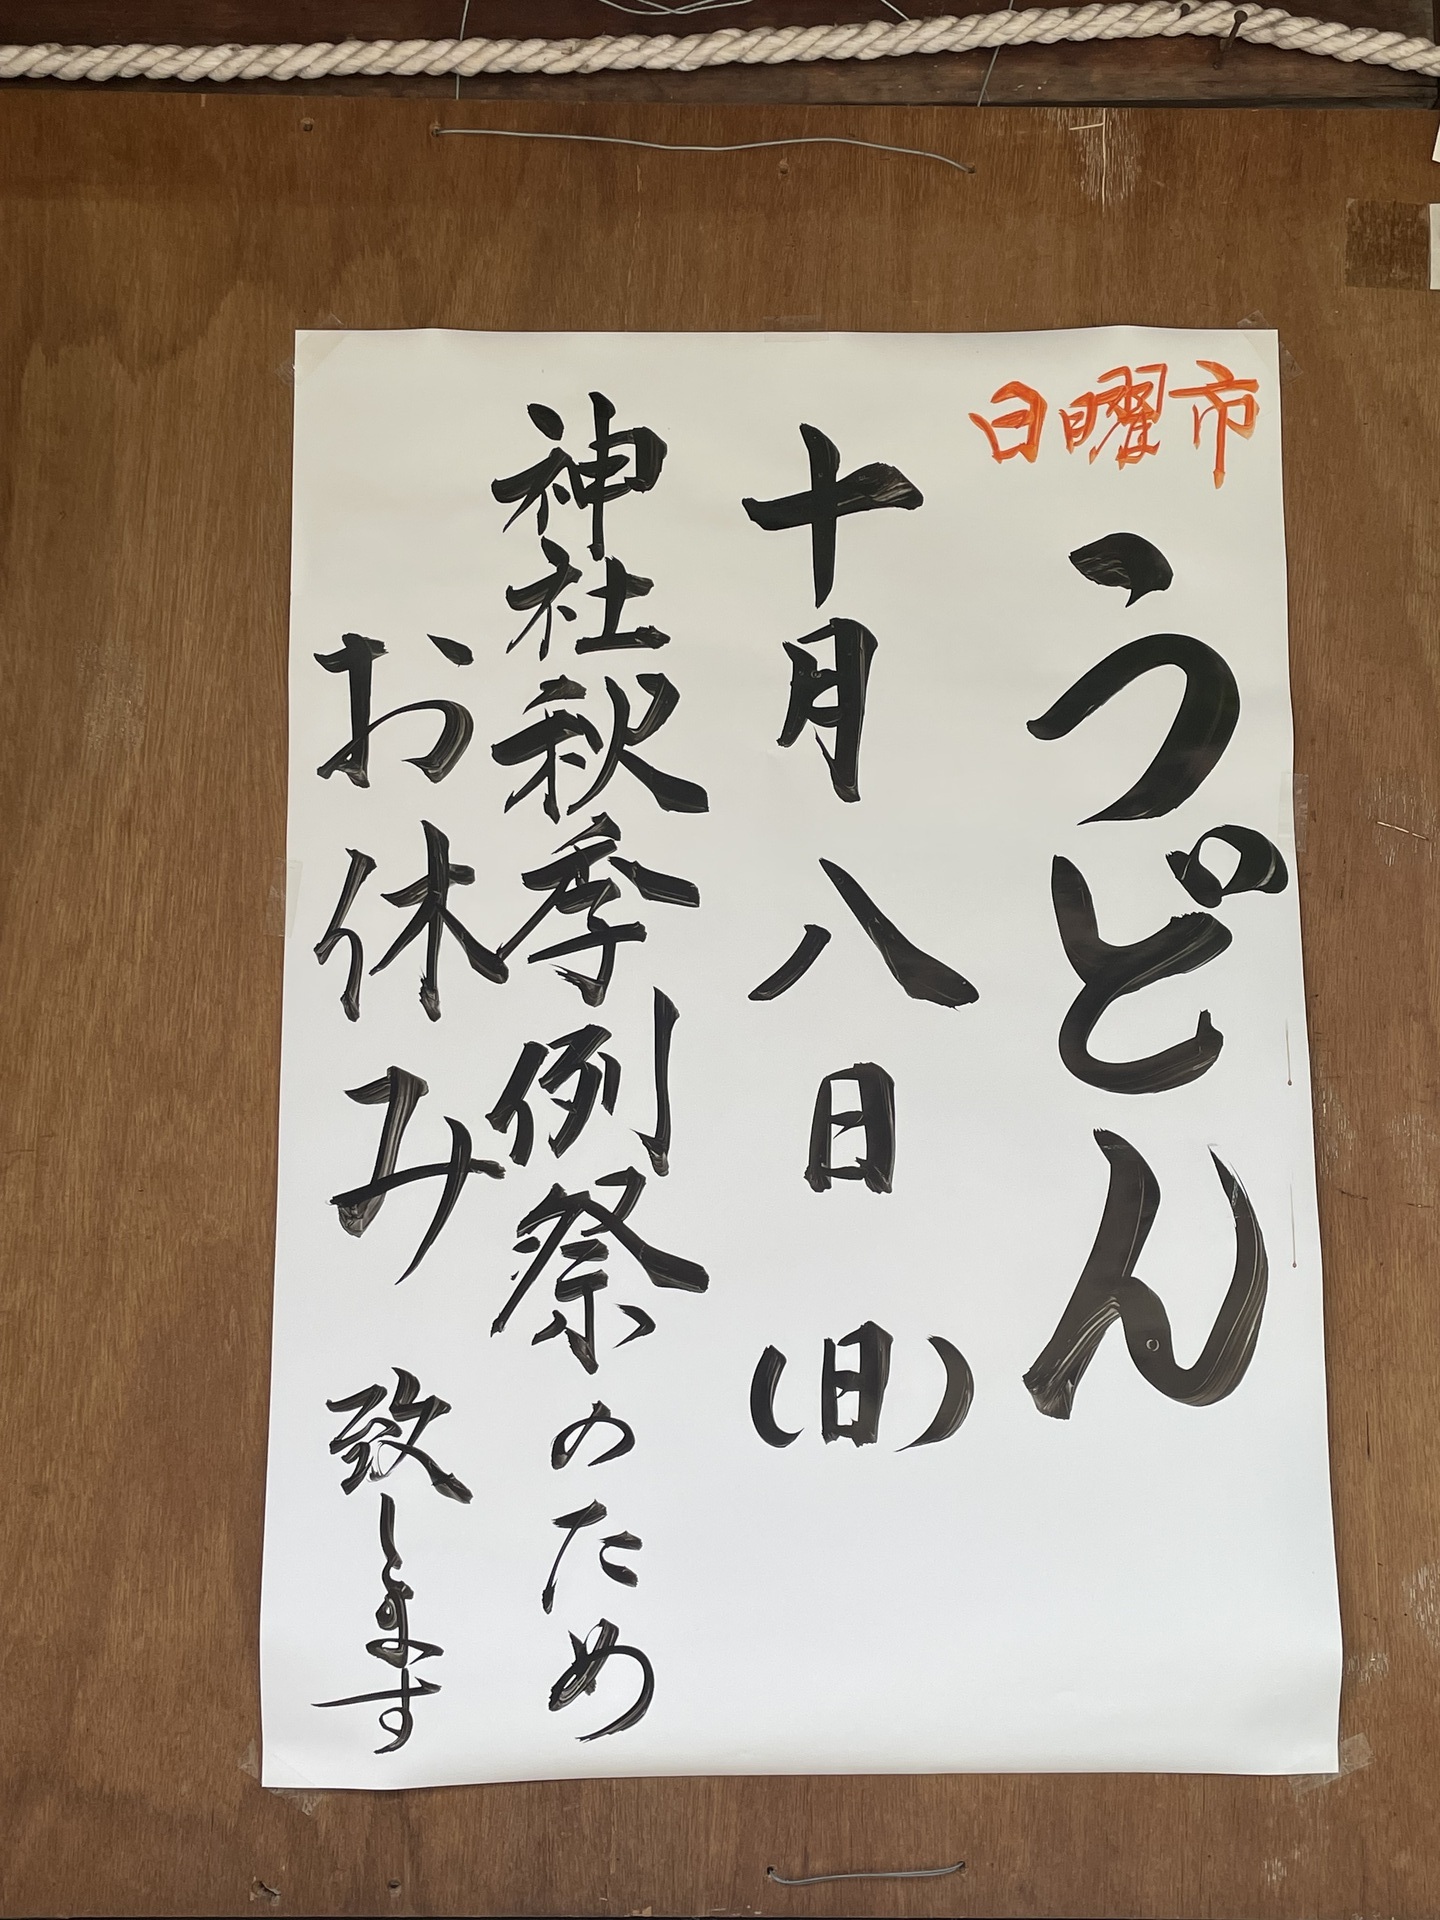 日曜市
うどん
十月八日（日）
神社秋季例祭のため
お休み 致します